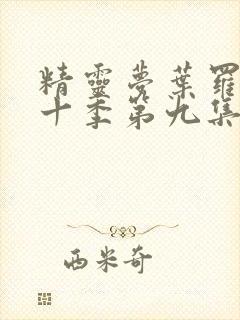 精靈夢葉羅
十季第九集
西米奇